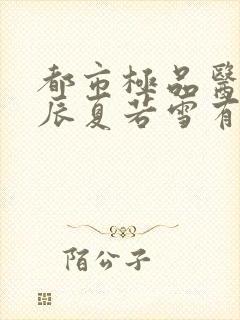 都市極品醫
辰夏若雪有
陌公子